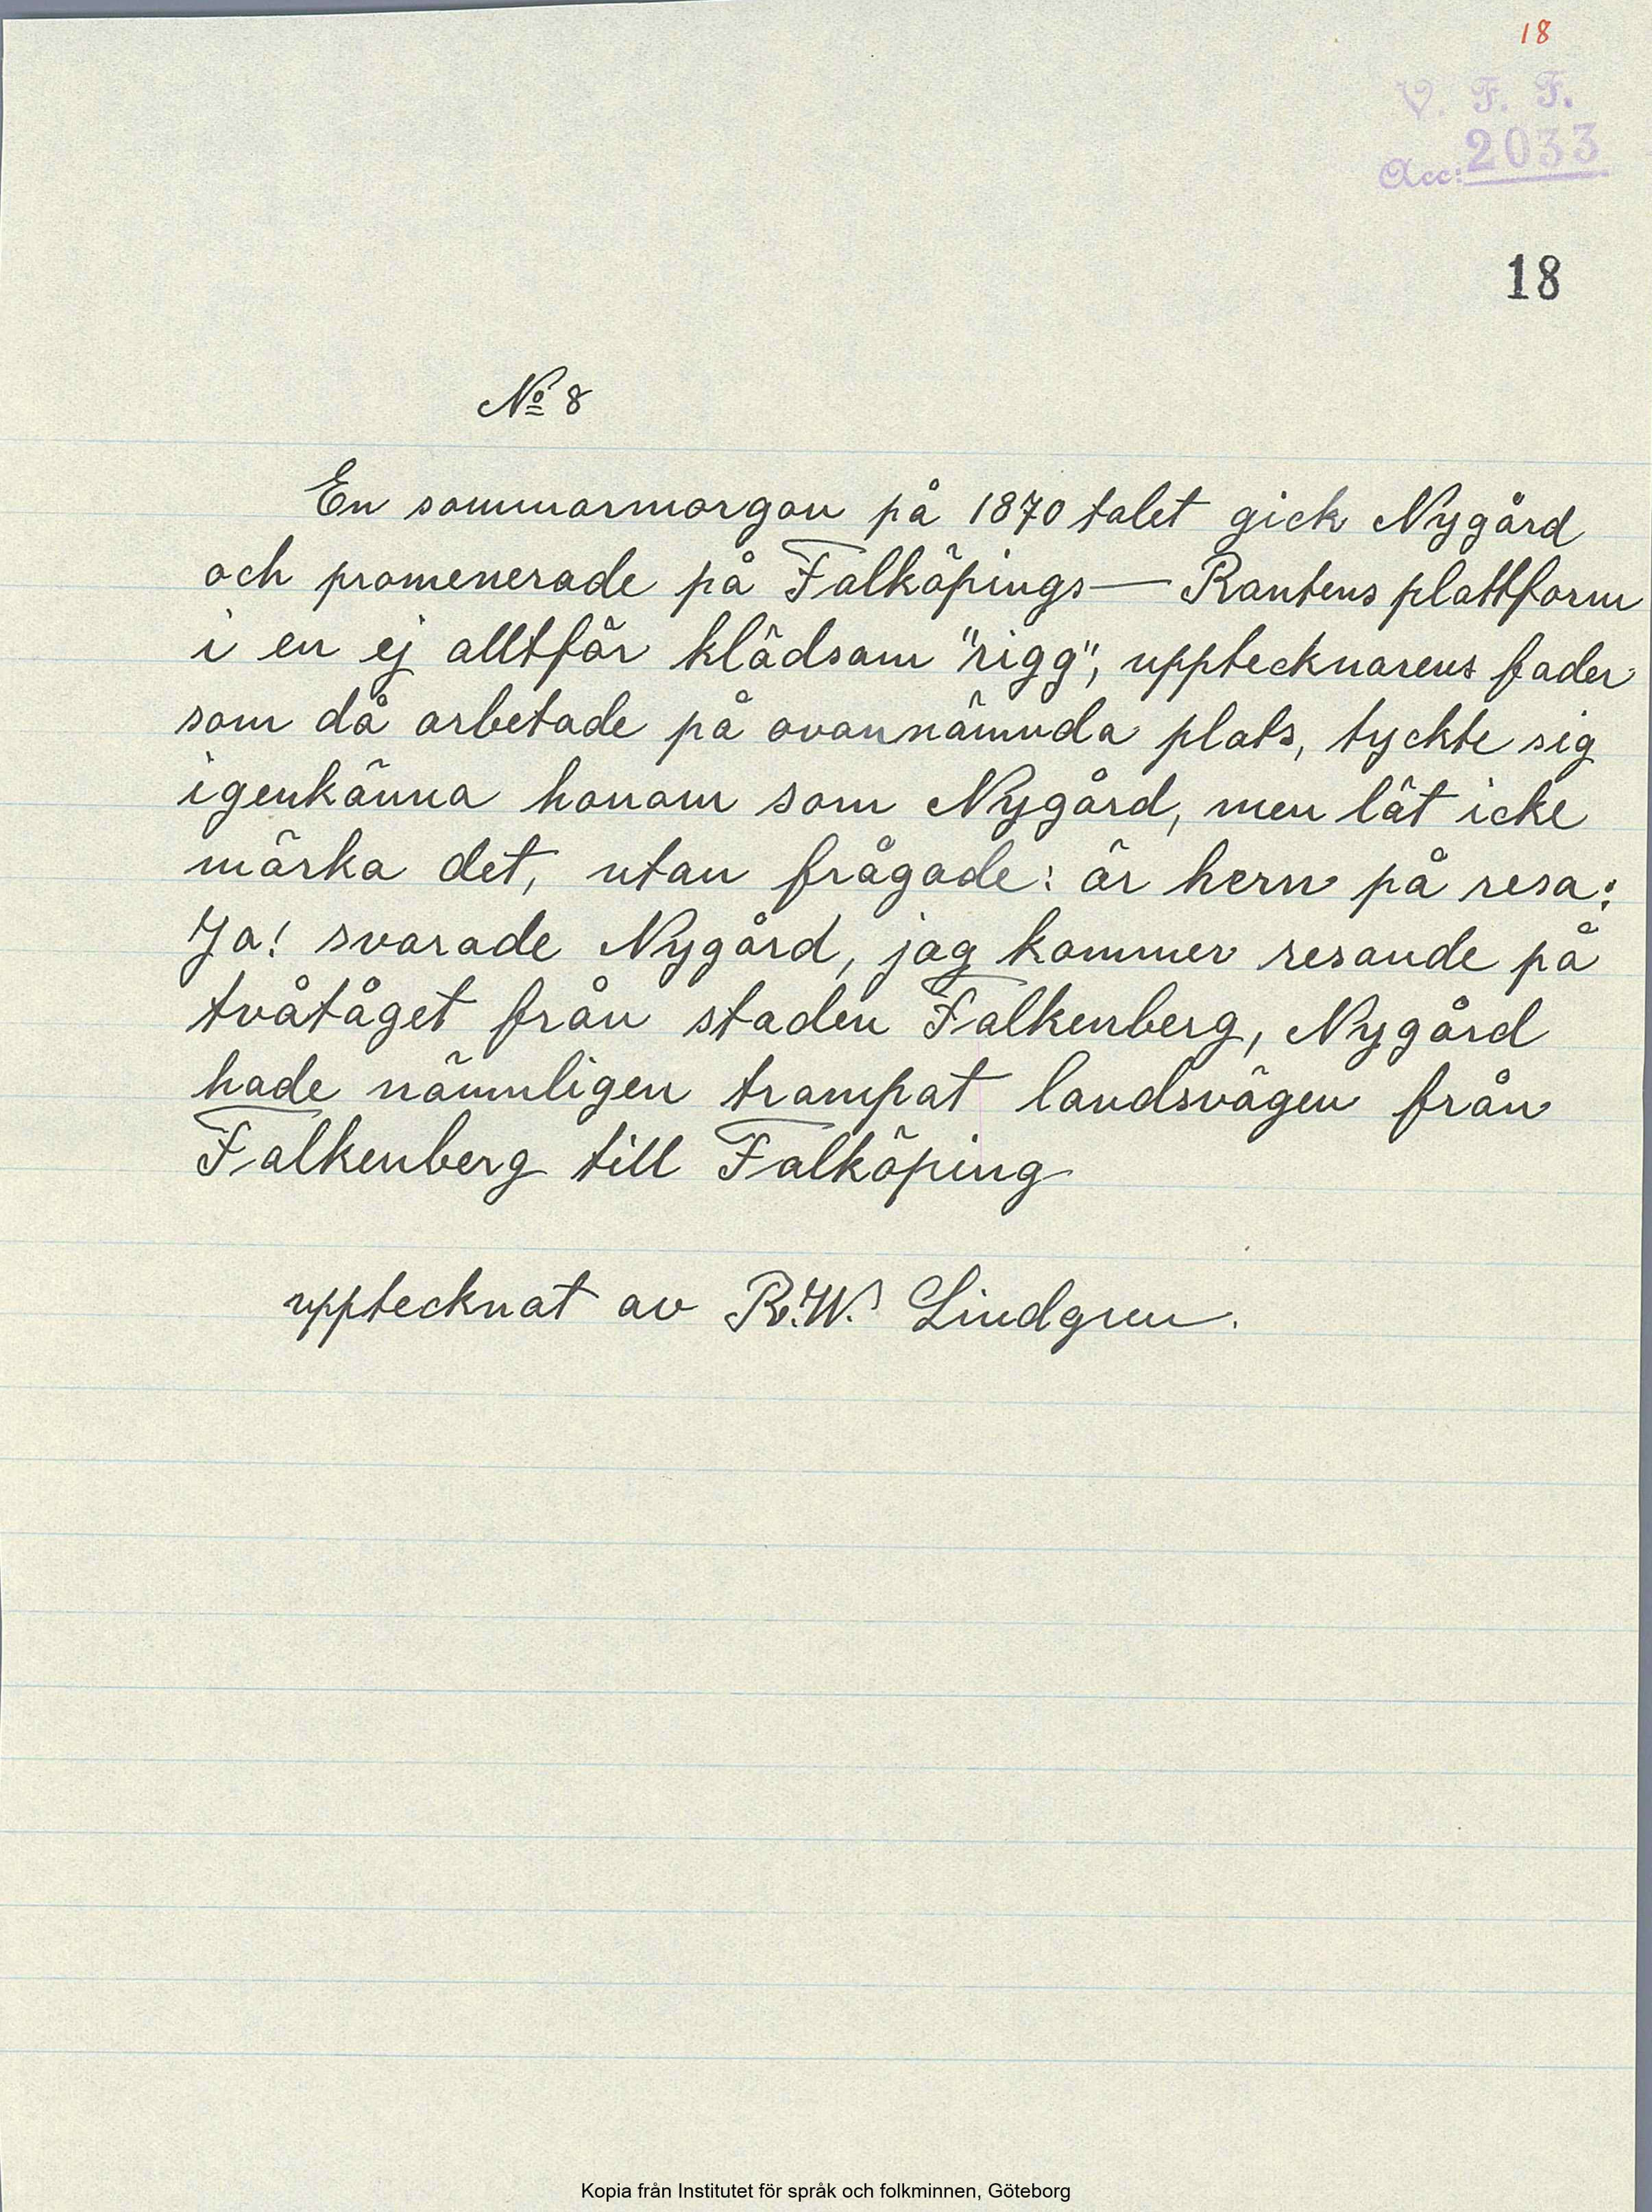 18
V. F. F.
Acc: 2033
18
№ 8
En sommarmorgon på 1870 talet gick Nygård
och promenerade på Falköpings— Rantens plattform
i en ej alltför klädsam "rigg", upptecknarens fader
som då arbetade på ovannämnda plats, tyckte sig
igenkänna honom som Nygård, men lät icke
märka det, utan frågade: är hern på resa:
Ja! svarade Nygård, jag kommer resande på
tvåtåget från staden Falkenberg, Nygård
hade nämnligen trampat landsvägen från
Falkenberg till Falköping
upptecknat av R.W. Lindgren.
Kopia från Institutet för språk och folkminnen, Göteborg